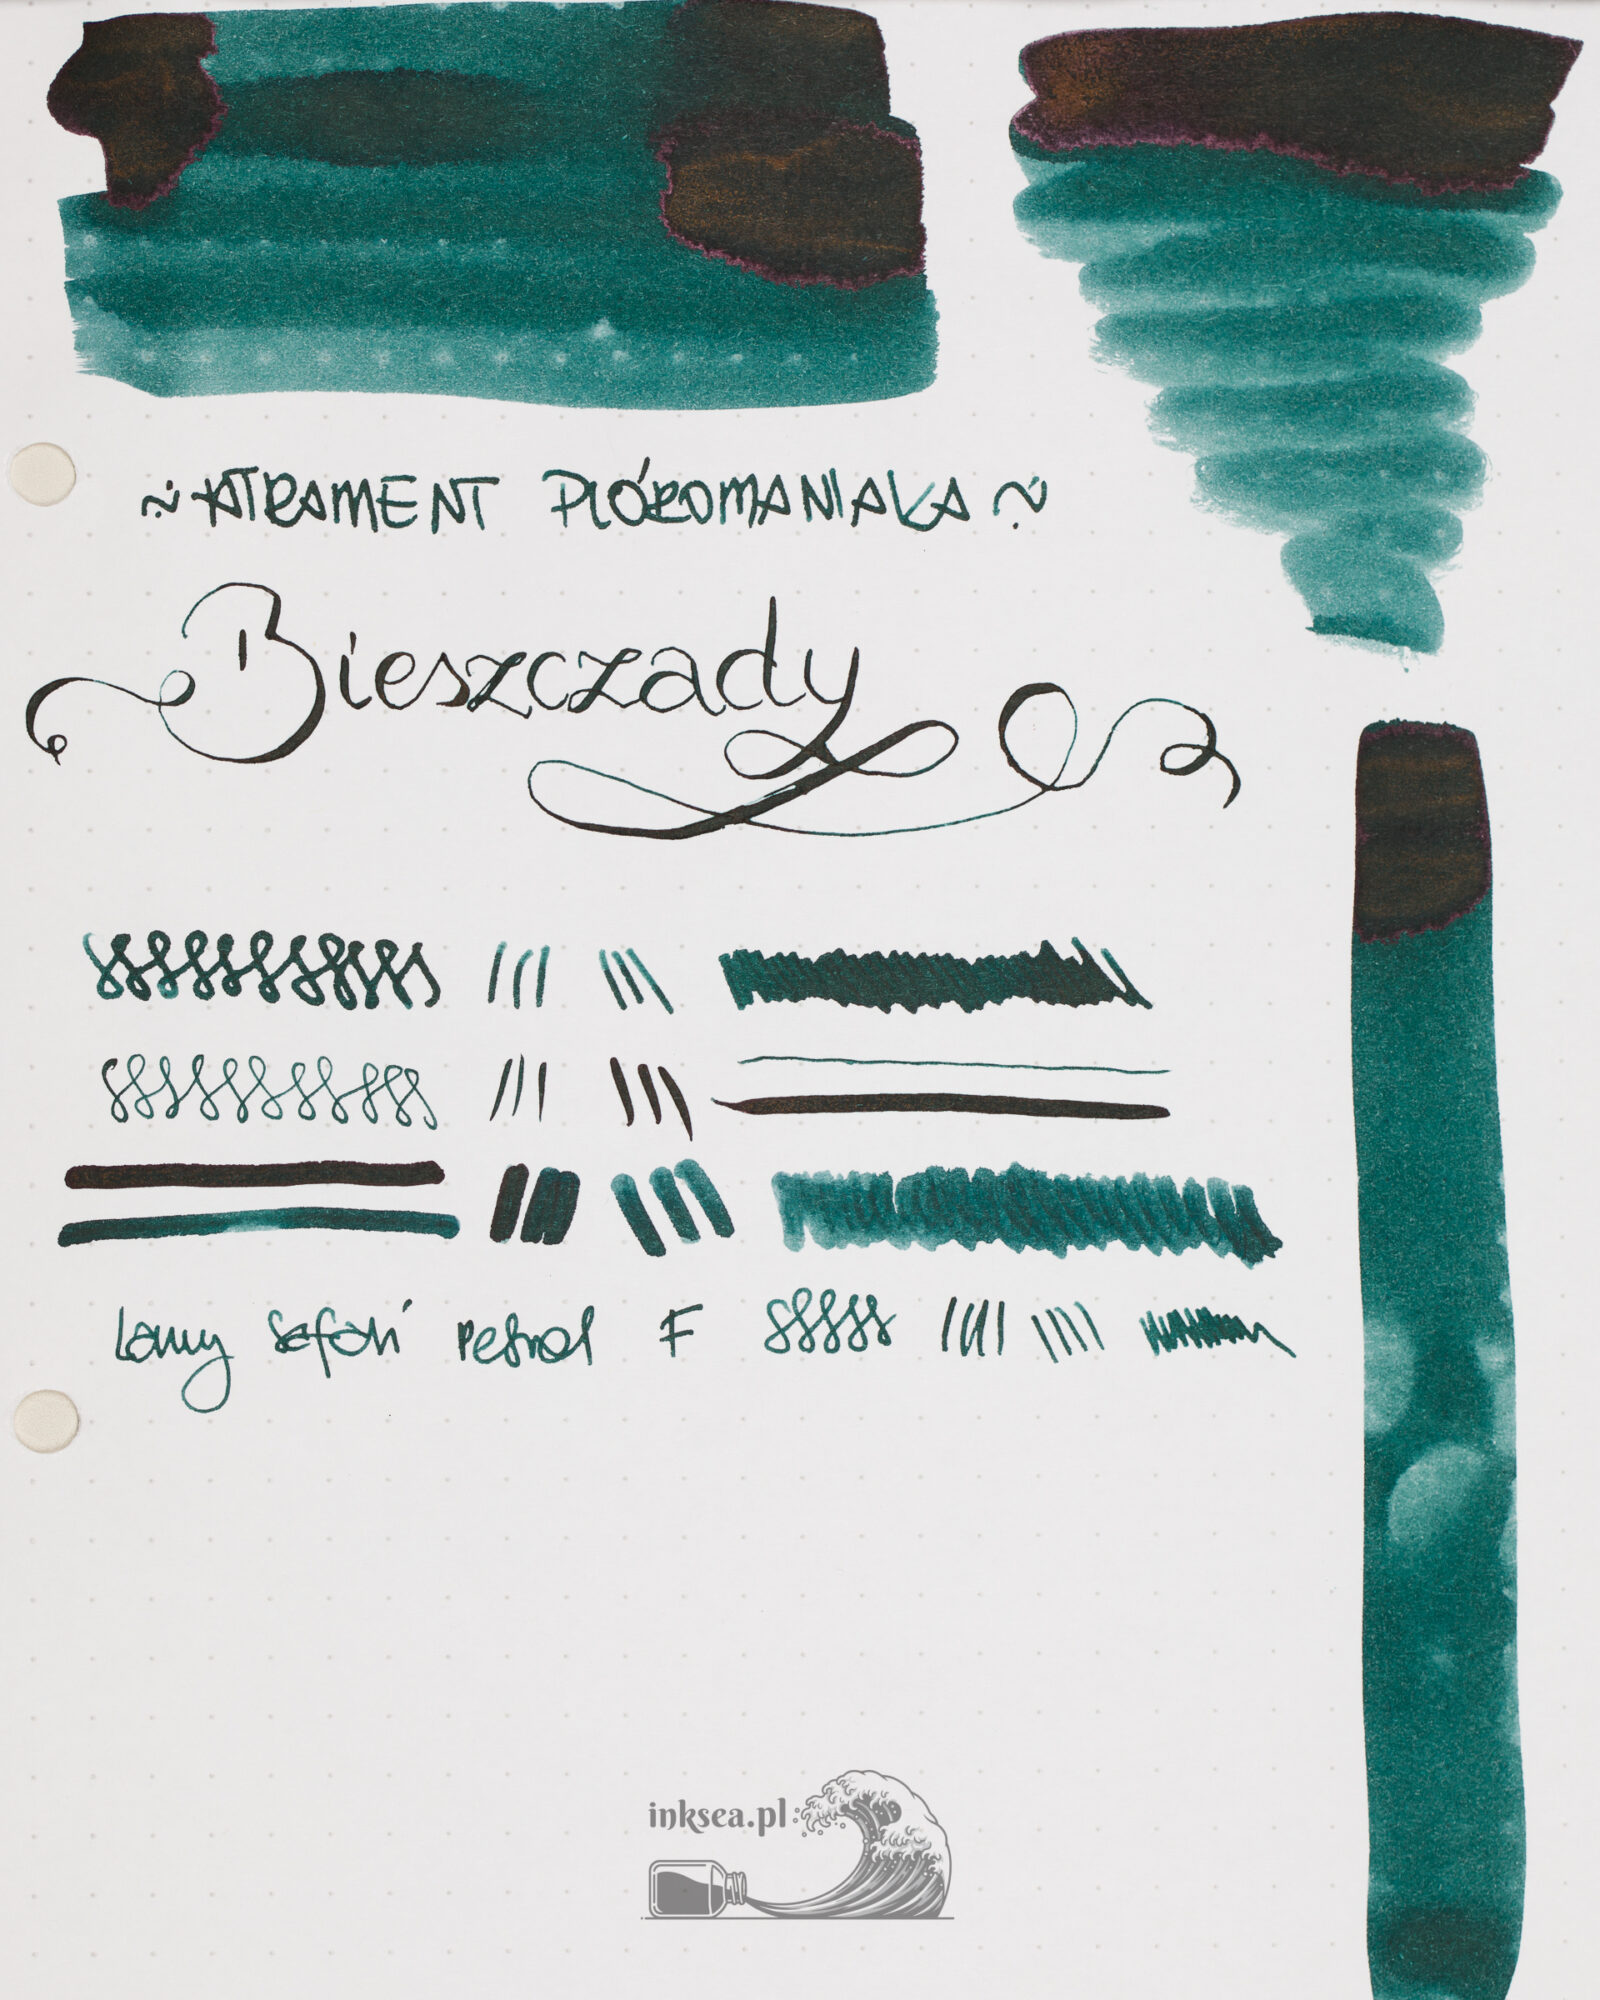 ~ ATRAMENT PIÓROMANIAKA ~
Bieszczady
Lamy Safari petrol F
inksea.pl